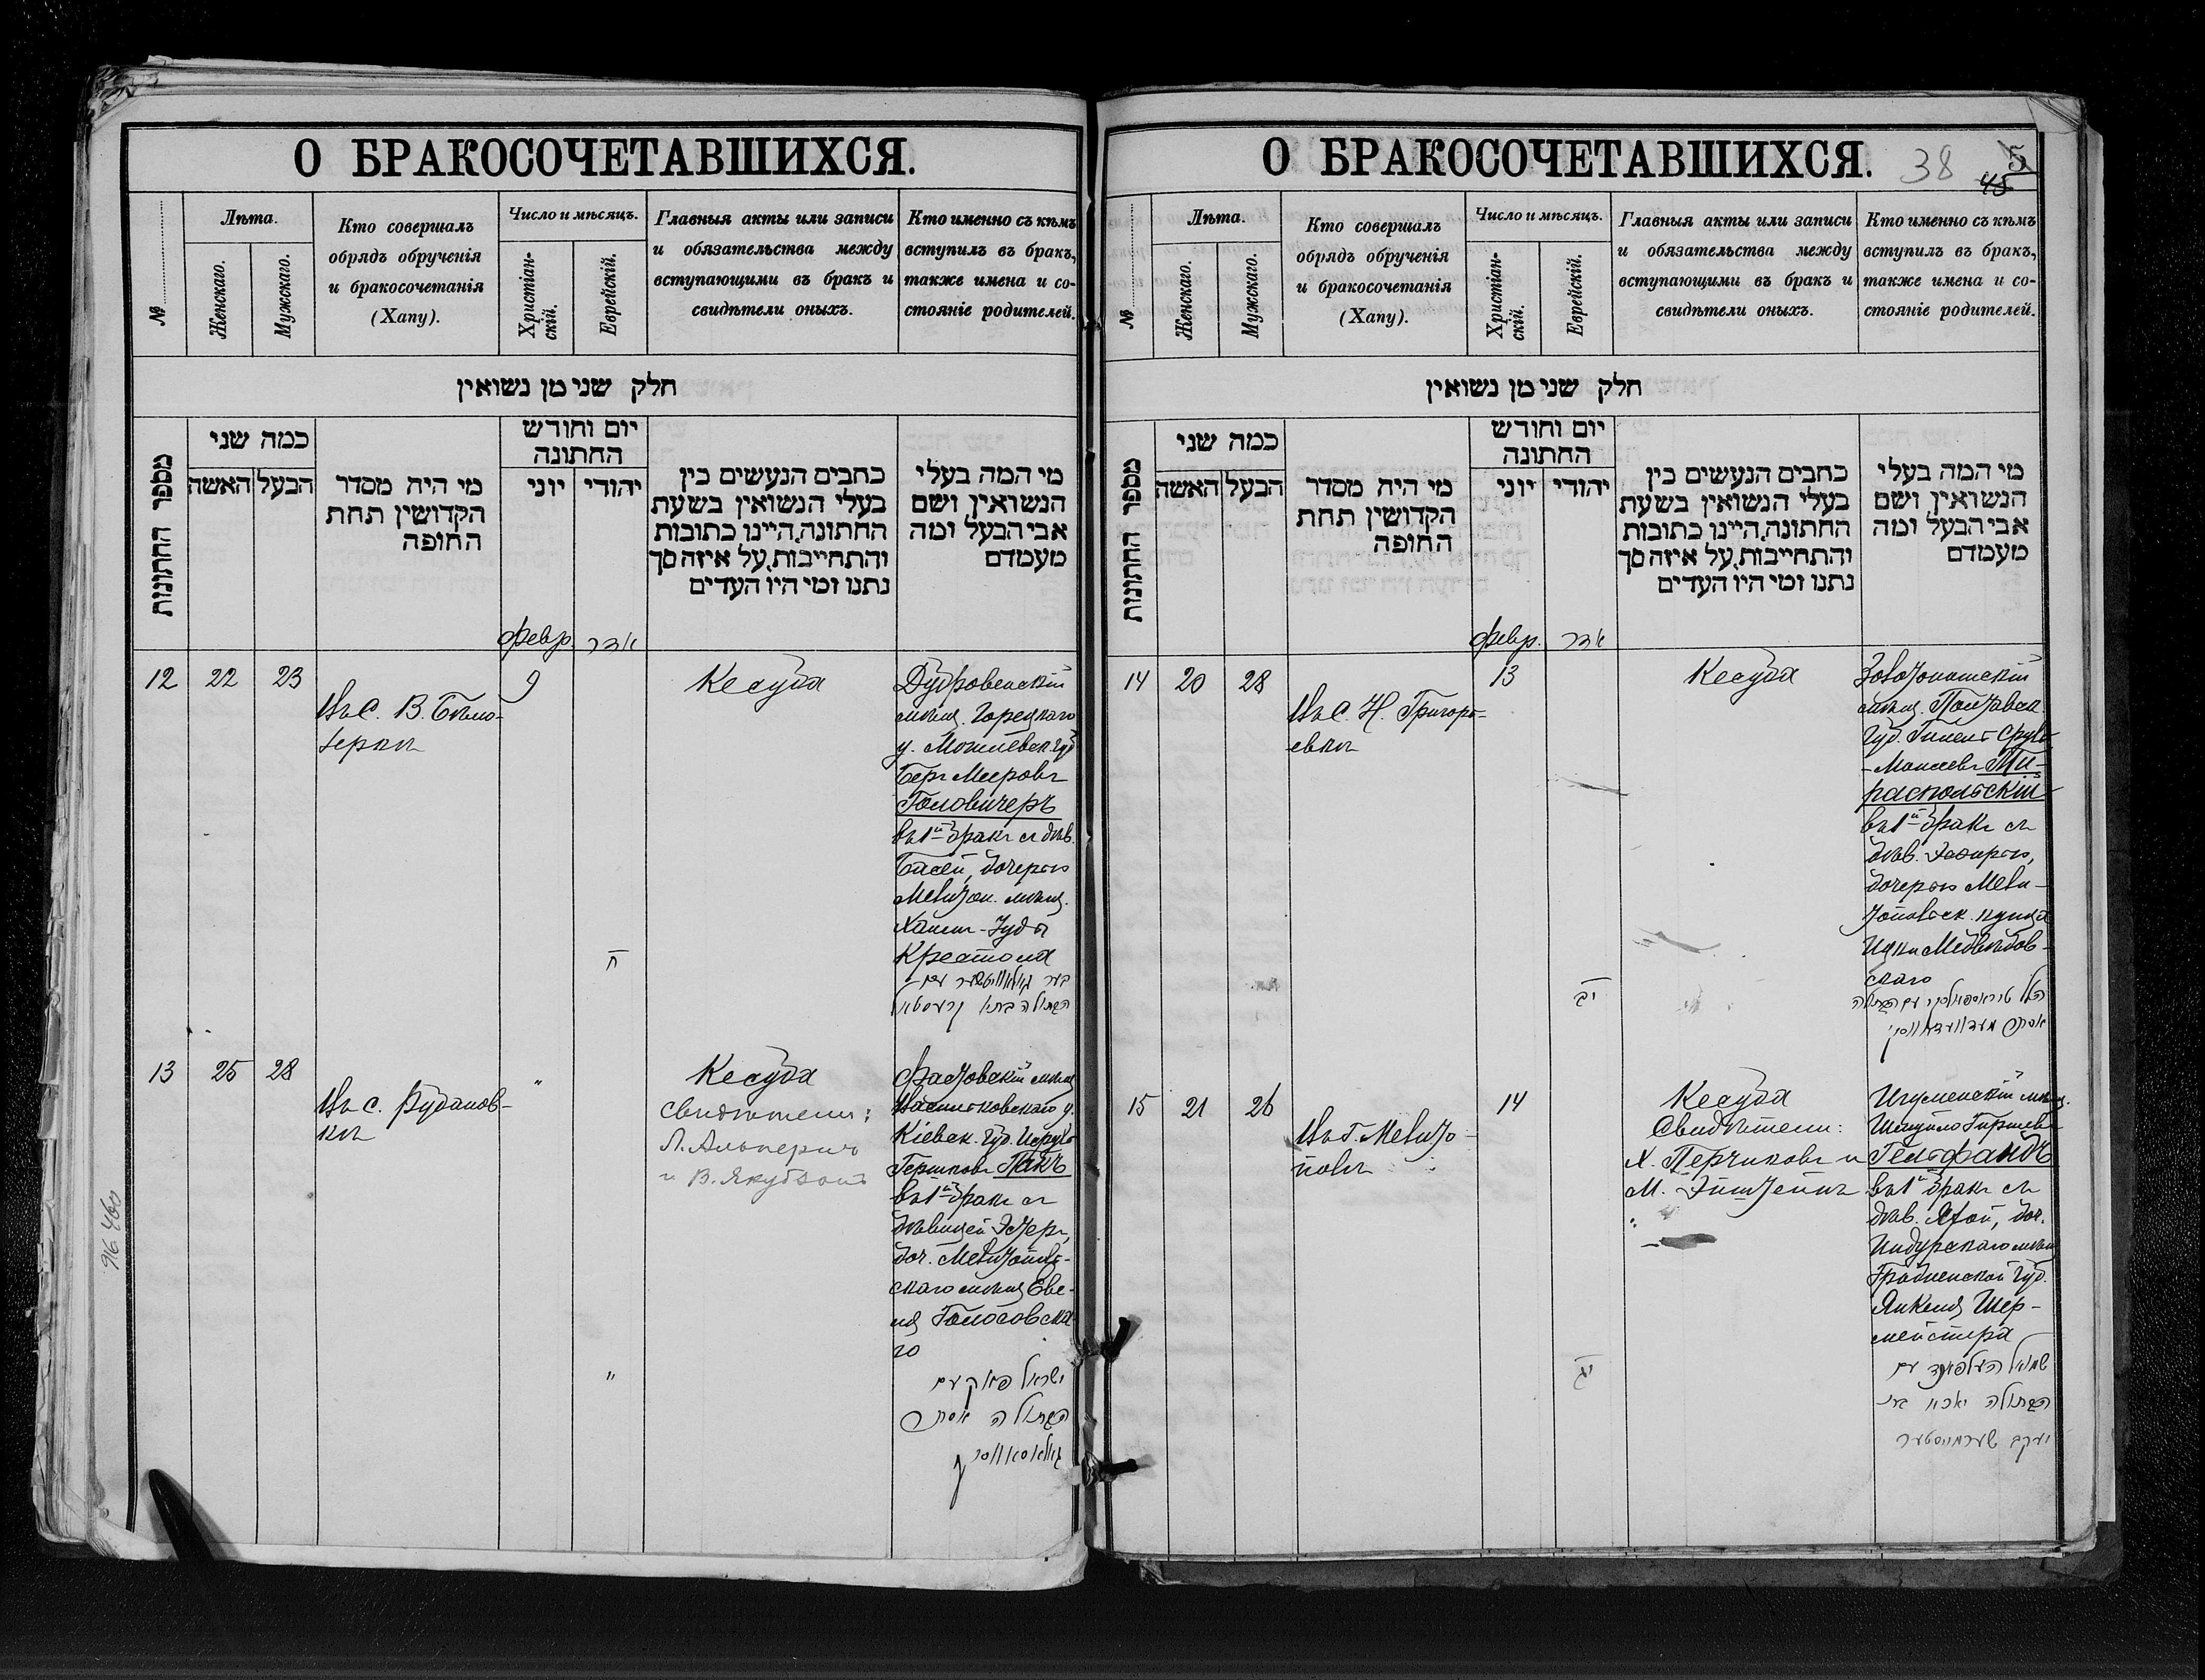 О БРАКОСОЧЕТАВШИХСЯ.
№
Лѣта.
Женскаго.
Мужскаго.
Кто совершалъ
обрядъ обрученія
и бракосочетанія
(Хапу).
Число и мѣсяцъ.
Христіан-
скій.
Еврейскій.
Главныя акты или записи
и обязательства между
вступающими въ бракъ и
свидѣтели оныхъ.
Кто именно съ кѣмъ
вступилъ въ бракъ,
также имена и со-
стояніе родителей.
חלק שני מן נשואין
מספר החתונות
כמה שני
האשה
הבעל
מי היה מסדר
הקדושין תחת
החופה
יום וחודש
החתונה
יוני
יהודי
כתבים הנעשים בין
בעלי הנשואין בשעת
החתונה, היינו כתובות
והתחייבות, על איזה סך
נתנו ומי היו העדים
מי המה בעלי
הנשואין ושם
אבי הבעל ומה
מעמדם
февр.
אדר
12
22
23
Въ С. В. Бѣло-
зеркѣ
9
ח
Кесуба
Дубровенскій
мѣщ. Горецкаго
у. Могилевск. губ.
Беръ Мееровъ
Головчеръ
въ 1й бракъ съ дѣв.
Басей, дочерью
Мелитоп. мѣщ.
Хаимъ-Іуды
הבתולה
13
25
28
Въ с. Рубанов-
кѣ
"
"
Кесуба
Свидѣтели:
Л. Альперинъ
и В. Якубзонъ
Фастовскій мѣщ.
Васильковскаго у.
Кіевск. губ. Исруль
Гершковъ Пакъ
въ 1й бракъ съ
дѣвицей Эстеръ,
доч. Мелитополь-
скаго мѣщ. Еве-
ля Голосовска-
го
ישראל פאק עם
הבתולה אסתר
גאלאסאווסקי
916 460
О БРАКОСОЧЕТАВШИХСЯ.
38
45
5
№
Лѣта.
Женскаго.
Мужскаго.
Кто совершалъ
обрядъ обрученія
и бракосочетанія
(Хапу).
Число и мѣсяцъ.
Христіан-
скій.
Еврейскій.
Главныя акты или записи
и обязательства между
вступающими въ бракъ и
свидѣтели оныхъ.
Кто именно съ кѣмъ
вступилъ въ бракъ,
также имена и со-
стояніе родителей.
חלק שני מן נשואין
מספר החתונות
כמה שני
האשה
הבעל
מי היה מסדר
הקדושין תחת
החופה
יום וחודש
החתונה
יוני
יהודי
כתבים הנעשים בין
בעלי הנשואין בשעת
החתונה, היינו כתובות
והתחייבות, על איזה סך
נתנו ומי היו העדים
מי המה בעלי
הנשואין ושם
אבי הבעל ומה
מעמדם
февр.
אדר
14
20
28
Въ С. Н. Григорь-
евкѣ
13
יב
Кесуба
Золотоношскій
мѣщ. Полтавск.
губ. Гилель Сруль
-Моисеевъ Ти-
распольскій
въ 1й бракъ съ
дѣв. Эсѳирью,
дочерью Мели-
топольск. купца
Ицки Медвѣдов-
скаго
הלל טיראספאלסקי עם הבתולה
אסתר מעדוועדאווסקי
15
21
26
Въ г. Мелито-
полѣ
14
יג
Кесуба
Свидѣтели:
Х. Перчиковъ и
М. Эпштейнъ
Игуменскій мѣщ.
Шмуйло Гиршевъ
Гельфандъ
въ 1й бракъ съ
дѣв. Хаей, доч.
Индурскаго мѣщ.
Гродненской губ.
Янкеля Шер-
мейстера
שמואל העלפאנד עם
הבתולה
יעקב שערמייסטער